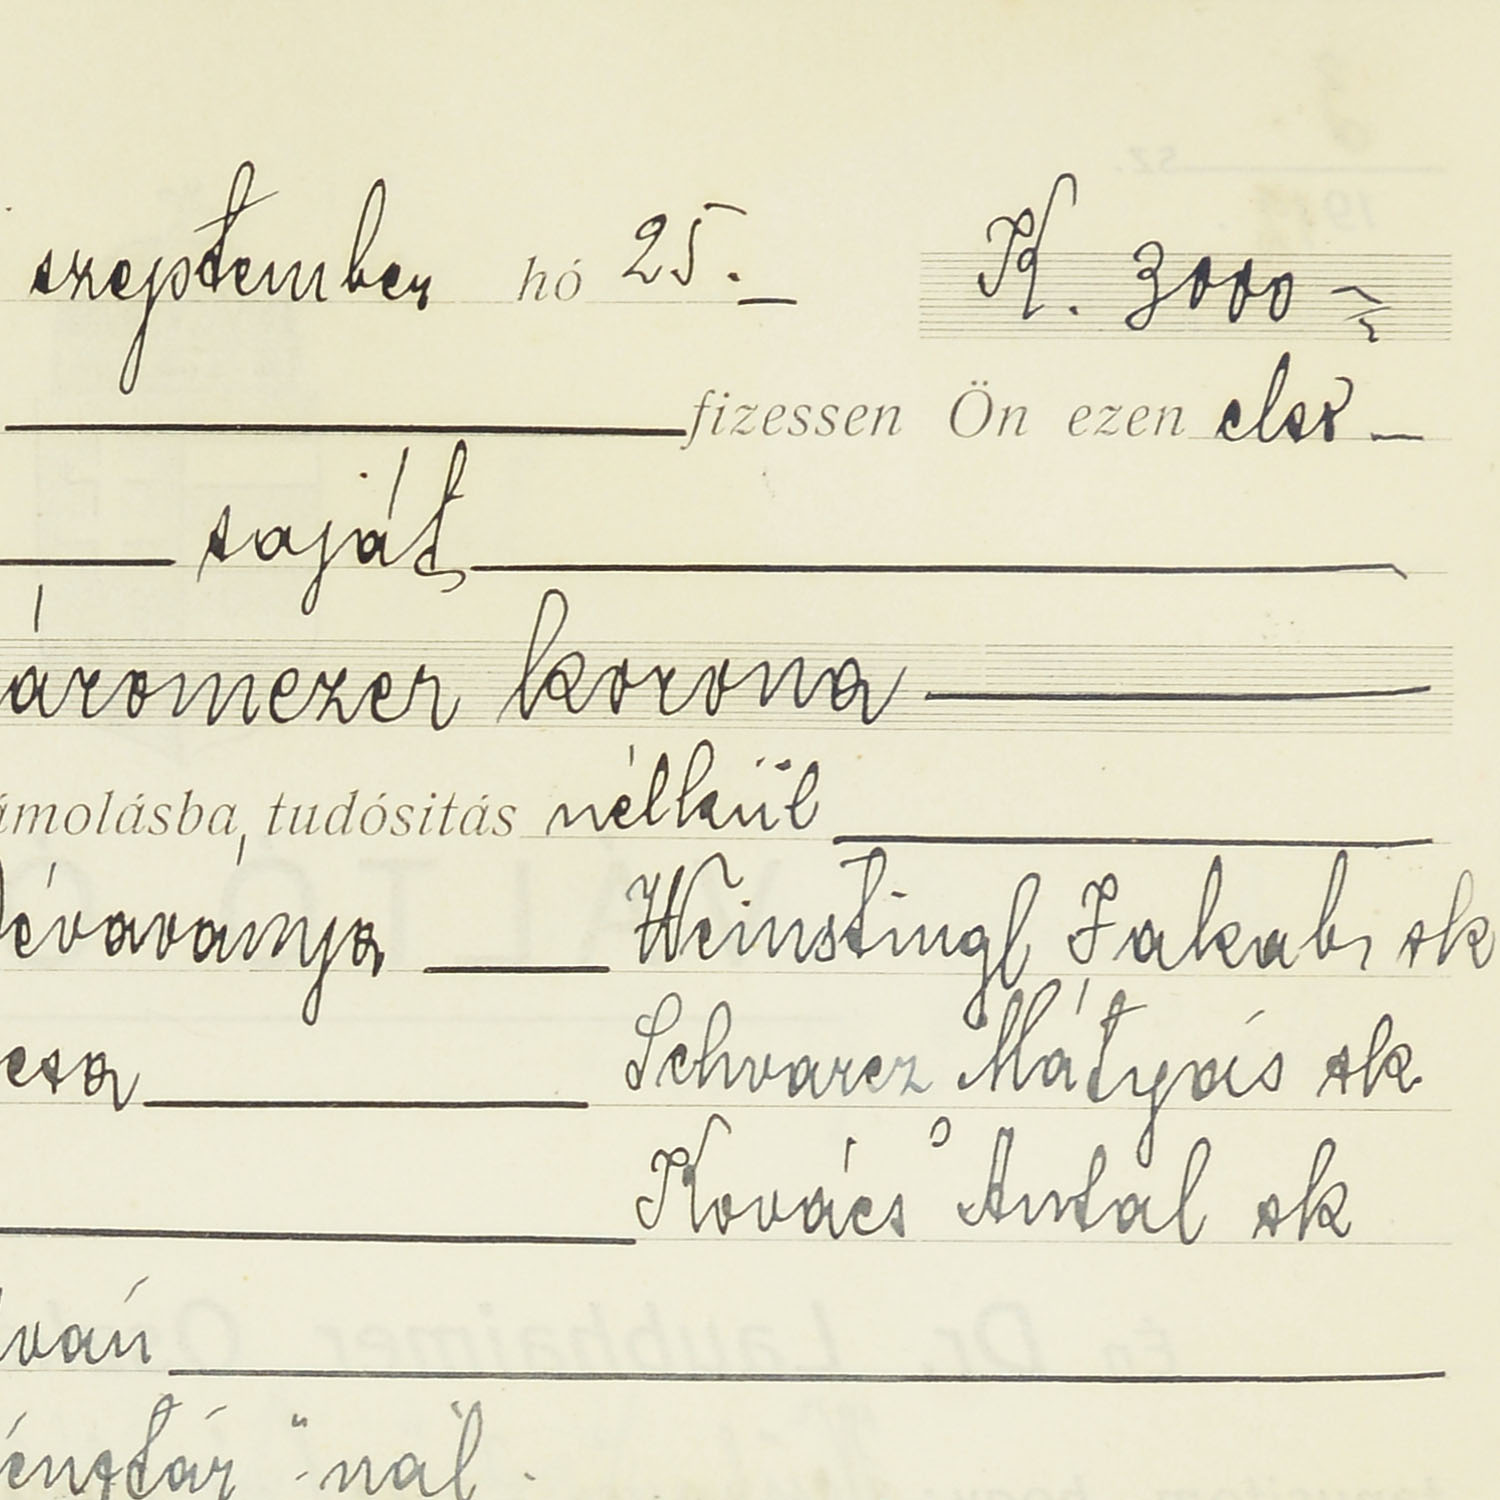 szeptember hó 25. — K. 3000
fizessen Ön ezen első —
saját
áromezer korona
ámolásba, tudósitás nélkül
évaványa — Weinstingl Jakab sk
csa Schvarcz Mátyás sk
Kovács Antal sk
tván
énztár"-nál.